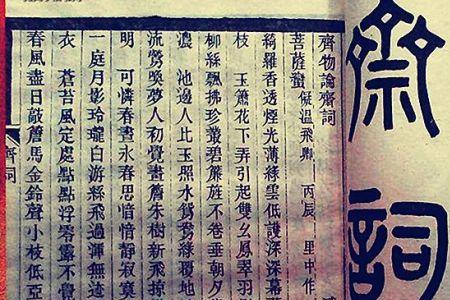 齋詞
齊物論齋詞
菩薩蠻 儗溫飛卿 丙辰 里中作
綺羅香透煙光薄絲雲低護深深幕
枝 玉簫花下弄引起雙幺鳳翠羽
柳絲飄拂珍叢碧簾旌不卷垂朝夕
濃 池邊人比玉照水鴛鴦綠覆地
流鶯喚夢人初覺畫簷朱樹新飛掠
明 可憐春晝永春思愔愔靜寂寞
一庭月影玲瓏白游絲飛過渾無迹
衣 蒼苔風定處點點浮零露不覺
春風盡日敲簷馬金鈴聲小枝低亞
齊詞